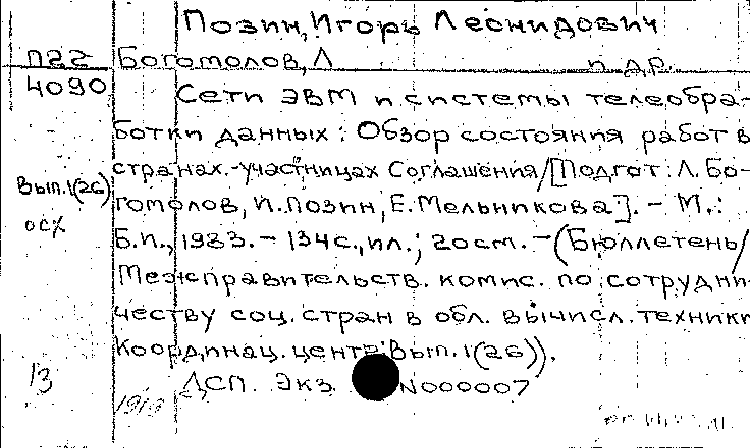 Позин, Игорь Леонидович
П22 Богомолов, Л и др.
4090 Сети ЭВМ и системы телеобра-
ботки данных: Обзор состояния работ в
странах-участницах Соглашения/[Подгот: Л. Бо-
Вып. 1(26) гомолов, И. Позин, Е. Мельникова]. - М.:
осх Б.и., 1983. - 134с., ил.; 20см. - (Бюллетень/
Межправительств. комис. по сотрудни-
честву соц. стран в обл. вычисл. техники
Координац. центр; Вып. 1(26)).
13 ДСП. Экз. N000007